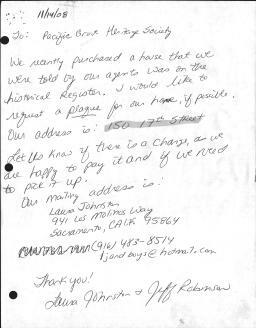 11/14/08
To: Pacific Grove Heritage Society
We recently purchased a house that we
were told by our agents was on the
historical Register. I would like to
request a plaque for our home, if possible.
Our address is: 150 17th Street
Let us know if there is a charge, as we
are happy to pay it and if we need
to pick it up.
Our mailing address is:
Laura Johnston
941 Los Molinos Way
Sacramento, CALIF. 95864
(916) 483-8514
jandboys@hotmail.com
Thank you!
Laura Johnston & Jeff Robinson